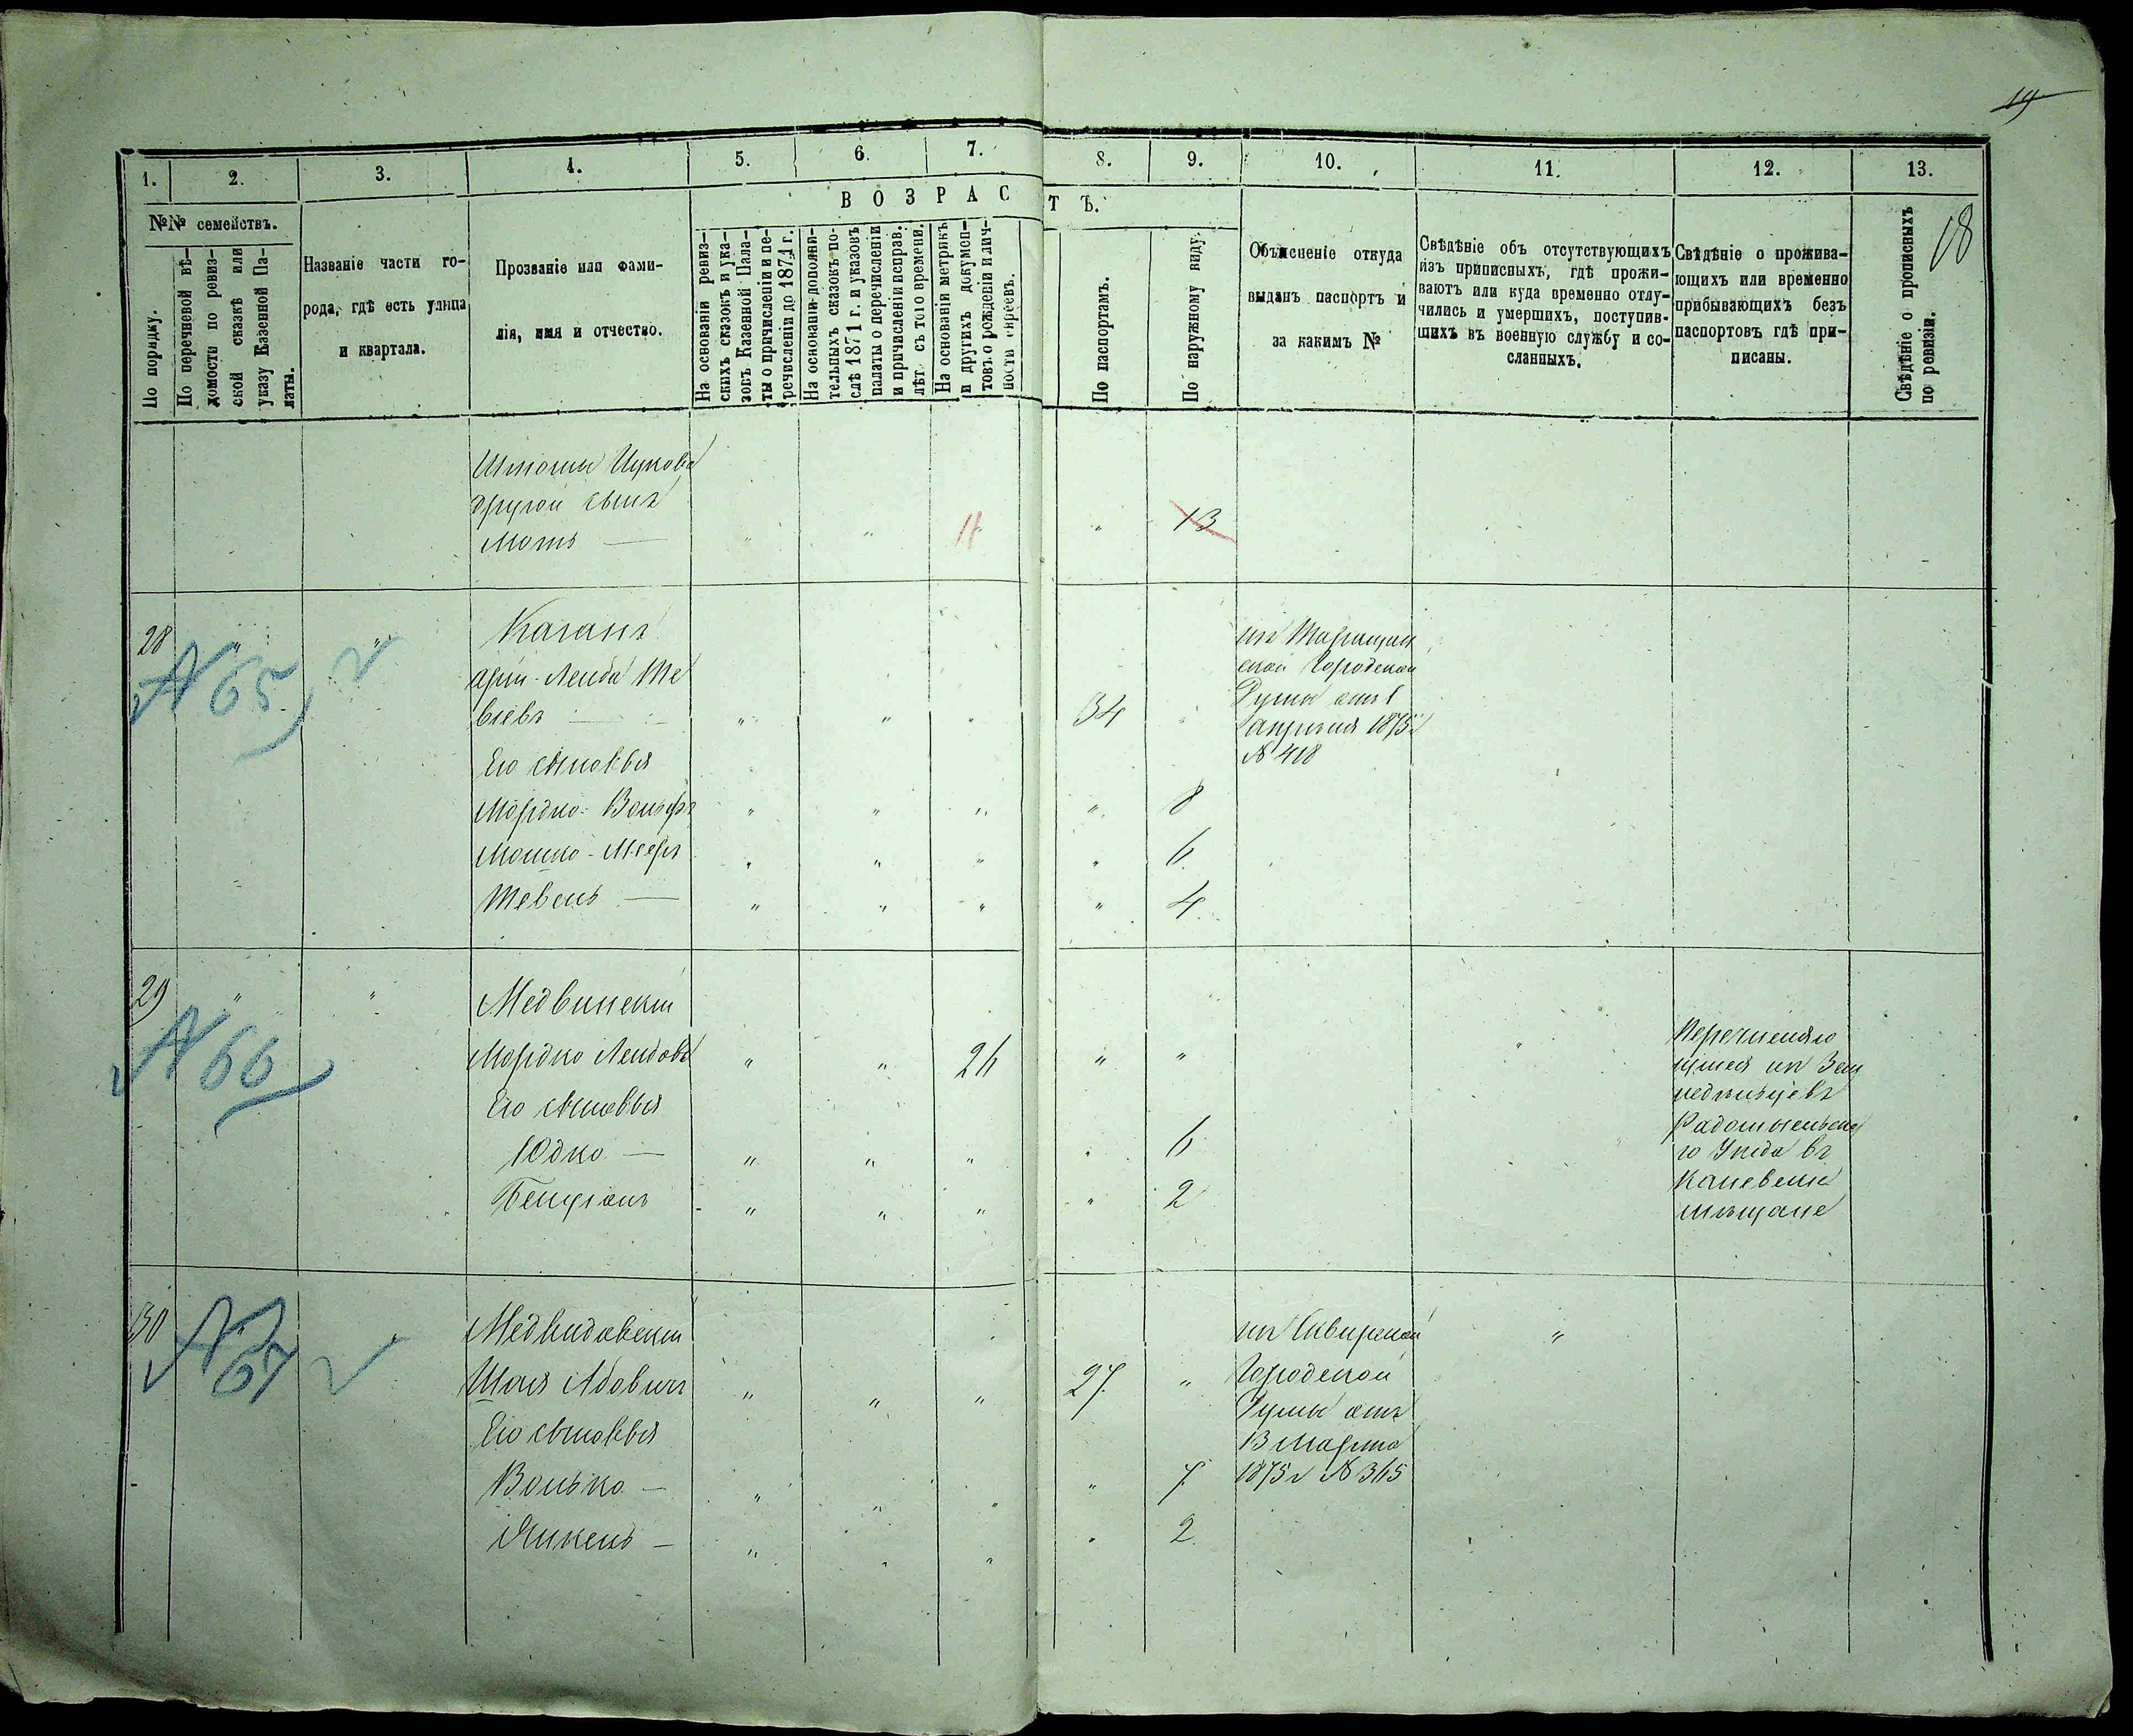 19
1. 2. 3. 4. 5. 6. 7. 8. 9. 10. 11. 12. 13.
ВОЗРАСТЪ.
№№ семействъ.
По порядку.
По перечневой вѣ-
домости по ревиз-
ской сказкѣ или
указу Казенной Па-
латы.
Названіе части го-
рода, гдѣ есть улица
и квартала.
Прозваніе или фами-
лія, имя и отчество.
На основаніи ревиз-
скихъ сказокъ и ука-
зовъ Казенной Пала-
ты о причисленіи и пе-
речисленіи до 1871 г.
На основаніи дополни-
тельныхъ сказокъ по-
слѣ 1871 г. и указовъ
палаты о перечисленіи
и причисленіи исправ.
лѣт. съ того времени.
На основаніи метрикъ
и другихъ докумен-
товъ о рожденіи и лич-
ности евреевъ.
По паспортамъ.
По наружному виду.
Объясненіе откуда
выданъ паспортъ и
за какимъ №
Свѣдѣніе объ отсутствующихъ
изъ приписныхъ, гдѣ прожи-
ваютъ или куда временно отлу-
чились и умершихъ, поступив-
шихъ въ военную службу и со-
сланныхъ.
Свѣдѣніе о прожива-
ющихъ или временно
прибывающихъ безъ
паспортовъ гдѣ при-
писаны.
Свѣдѣніе о прописныхъ
по ревизіи.
18
другой сынъ
Моть — " " " 13
28 " " Каганъ
№ 65
Арій-Лейба Те
віевъ — " " " 34 "
изъ Таращан
ской Городской
Думы отъ 1
апрѣля 1875 г
№ 418
Его сыновья
Мордко-Вольфъ " " " " 8
Мошко-Мееръ " " " " 6
Тевель — " " " " 4
29 " " Медвинскій
№ 66
Мордко Лейбовъ " " 26 " "
Его сыновья
Юдко — " " " " 6
Бенціонъ " " " " 2
Перечисляю
щійся изъ Зем
ледѣльцевъ
Радомысльска
го Уѣзда въ
Каневскіе
мѣщане
30 Медвидовскій
№ 67
Шая Абовичъ " " " 27 "
изъ Сквирской
Городской
Думы отъ
13 Марта
1875 г № 365
"
Его сыновья
Волько — " " " " 7
Янкель — " " " " 2